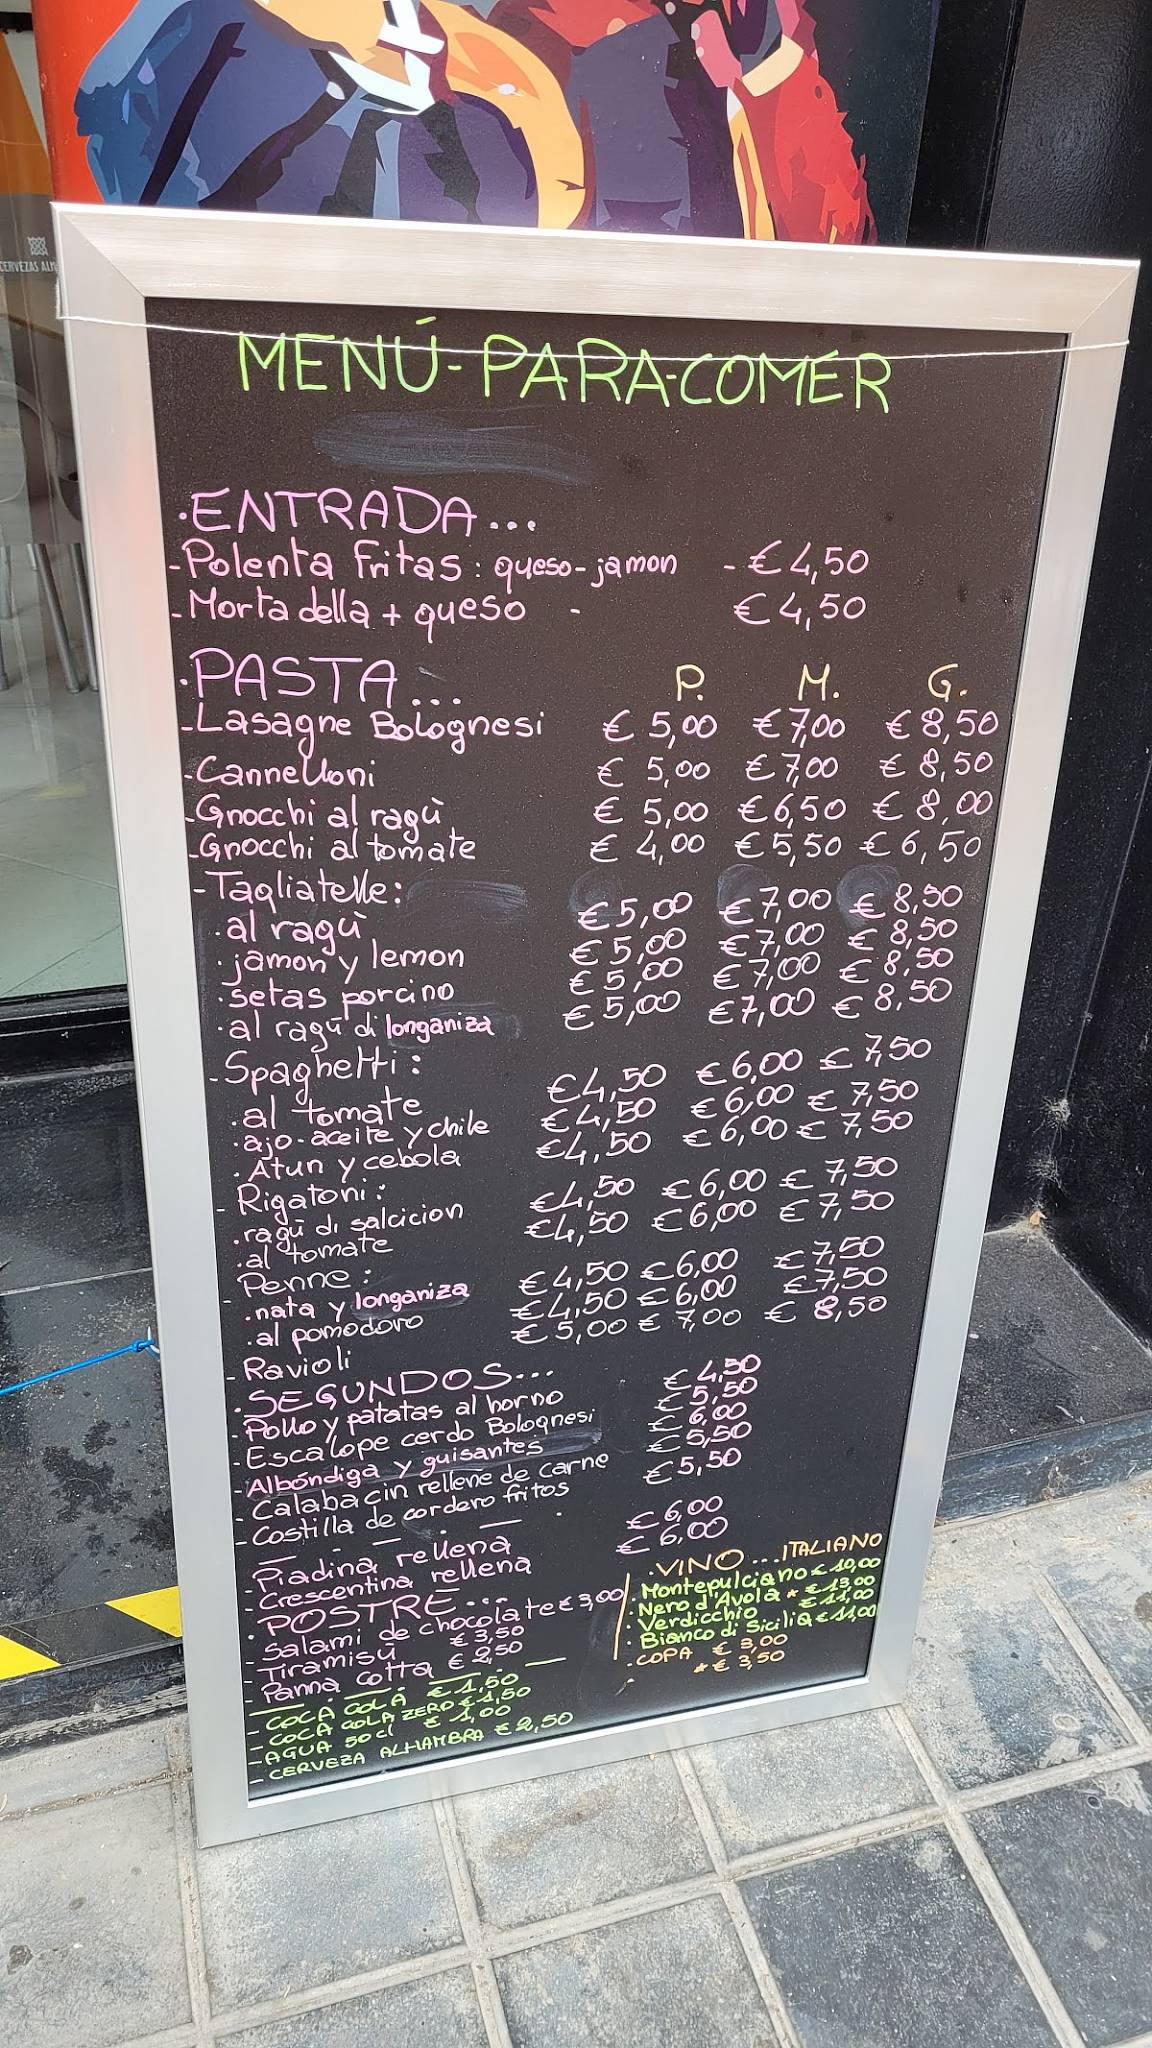 CERVEZAS
MENÚ-PARA-COMER
·ENTRADA...
-Polenta fritas: queso-jamon - €4,50
-Mortadella + queso - €4,50
·PASTA... P. M. G.
-Lasagne Bolognesi € 5,00 €7,00 €8,50
-Cannelloni € 5,00 €7,00 € 8,50
-Gnocchi al ragù € 5,00 €6,50 € 8,00
-Gnocchi al tomate € 4,00 €5,50 €6,50
-Tagliatelle:
·al ragù €5,00 €7,00 €8,50
·jamon y lemon €5,00 €7,00 €8,50
·setas porcino €5,00 €7,00 €8,50
·al ragù di longaniza €5,00 €7,00 €8,50
-Spaghetti:
·al tomate €4,50 €6,00 €7,50
·ajo-aceite y chile €4,50 €6,00 €7,50
·Atun y cebola €4,50 €6,00 €7,50
-Rigatoni:
·ragù di salcicion €4,50 €6,00 €7,50
·al tomate €4,50 €6,00 €7,50
-Penne:
·nata y longaniza €4,50 €6,00 €7,50
·al pomodoro €4,50 €6,00 €7,50
-Ravioli €5,00 €7,00 €8,50
·SEGUNDOS...
-Pollo y patatas al horno €4,50
-Escalope cerdo Bolognesi €5,50
-Albóndiga y guisantes €6,00
-Calabacin rellene de carne €5,50
-Costilla de cordero fritos €5,50
-Piadina rellena €6,00
-Crescentina rellena €6,00
·POSTRE...
-Salami de chocolate €3,00
-Tiramisù €3,50
-Panna cotta €2,50
-COCA COLA €1,50
-COCA COLA ZERO €1,50
-AGUA 50cl €1,00
-CERVEZA ALHAMBRA €2,50
·VINO...ITALIANO
·Montepulciano €10,00
·Nero d'Avola * €13,00
·Verdicchio €11,00
·Bianco di Sicilia €11,00
·COPA € 3,00
*€ 3,50